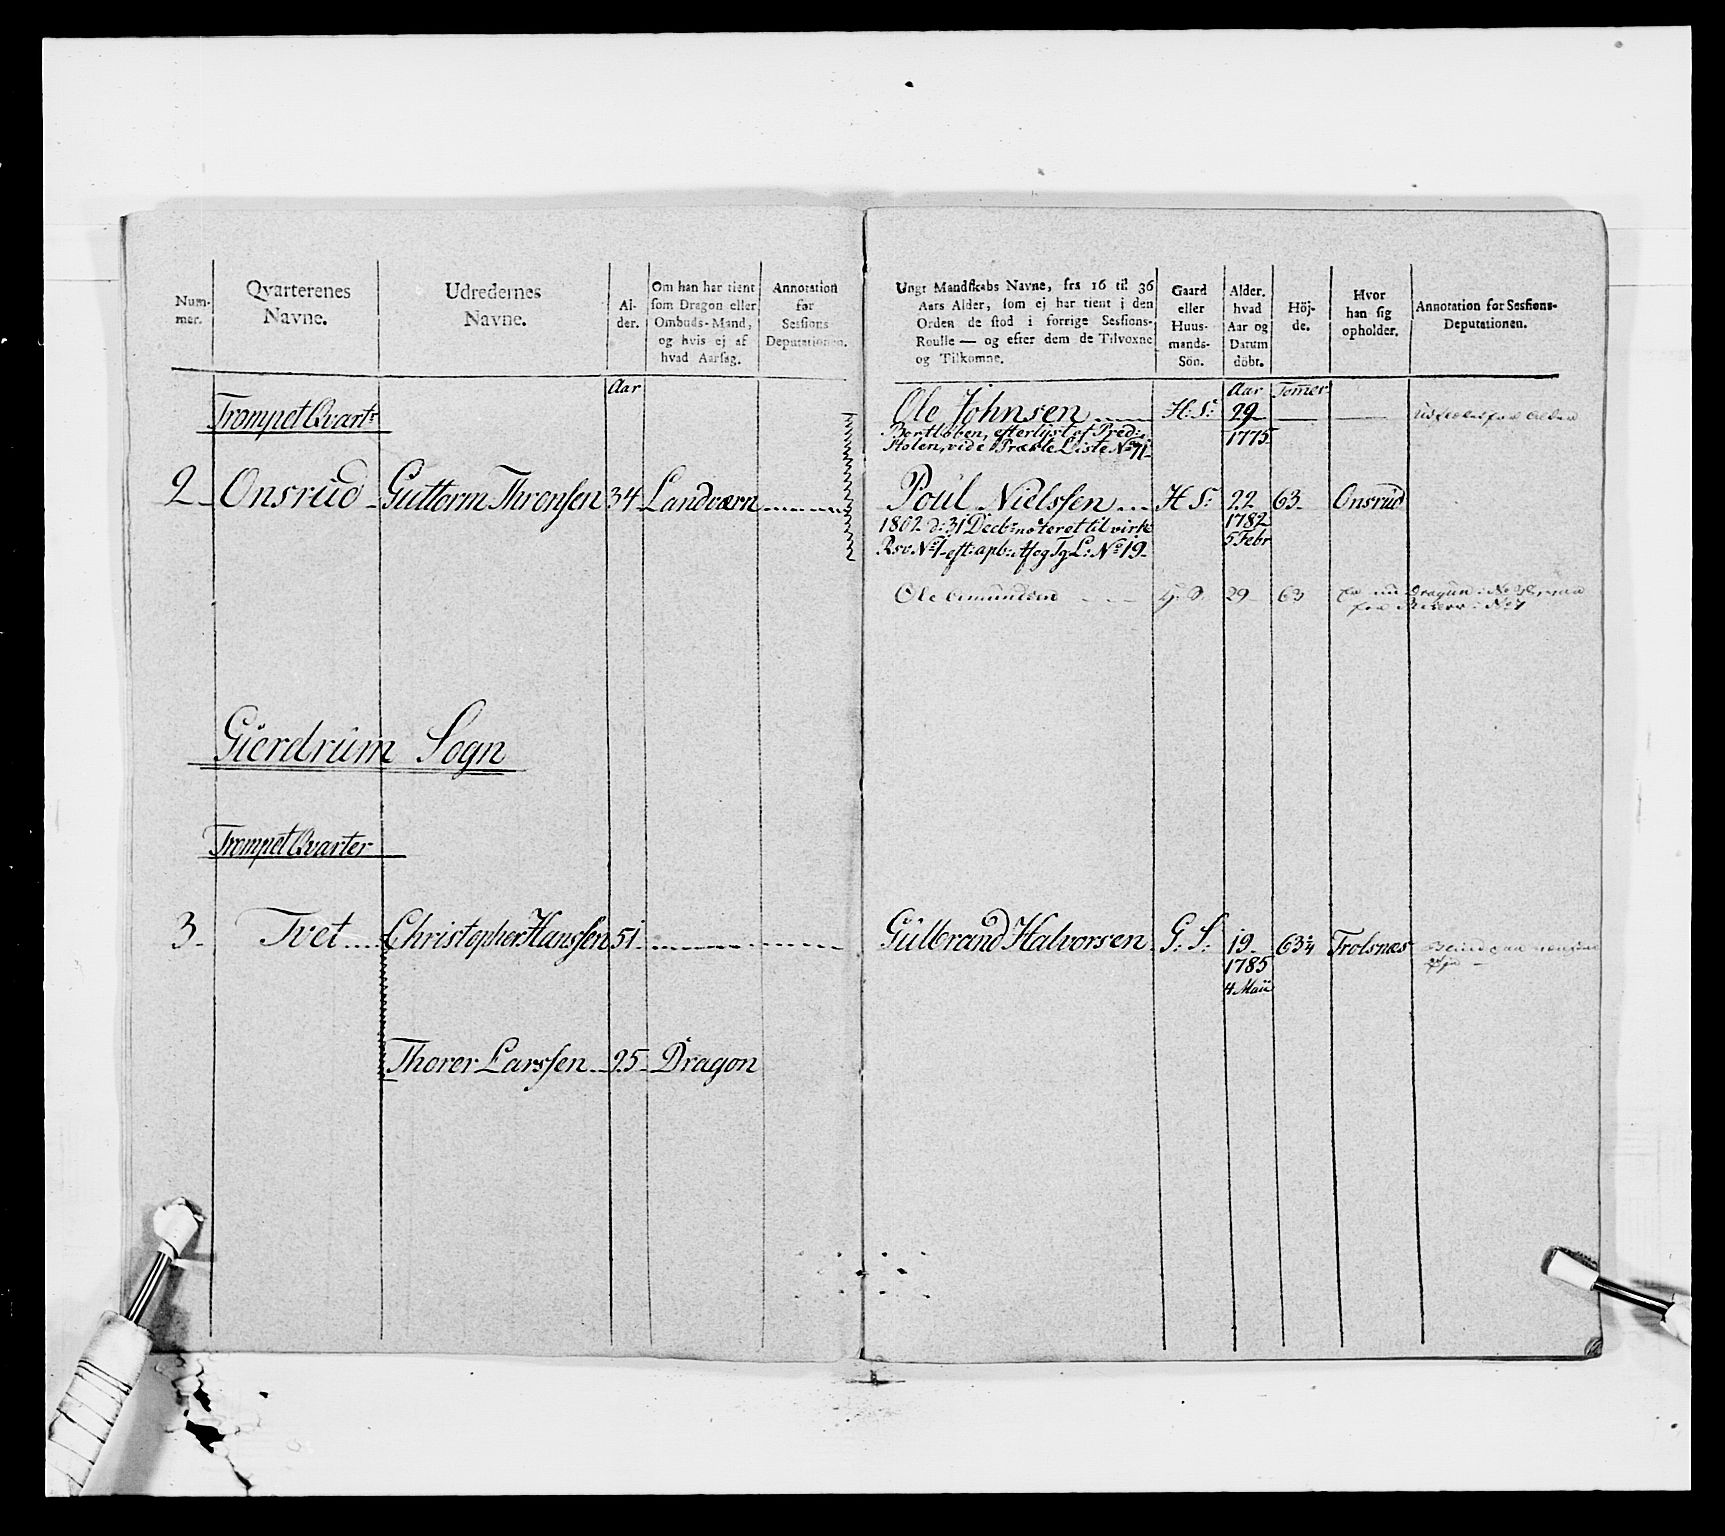 Num-
mer.
Qvarterenes
Navne.
Udredernes
Navne.
Al-
der.
Om han har tient
som Dragon eller
Ombuds-Mand,
og hvis ej af
hvad Aarsag.
Annotation
for
Sessions
Deputationen.
Aar
Trompet Qvartr
2 Onsrud Guttorm Thronsen 34 Landværn
Gierdrum Sogn
Trompet Qvarter
3 Tvet Christopher Hanssen 51
Thorer Larssen 25 Dragon
Ungt Mandskabs Navne, fra 16 til 36
Aars Alder, som ej har tient i den
Orden de stod i forrige Sessions-
Roulle — og efter dem de Tilvoxne
og Tilkomne.
Gaard
eller
Huus-
mands-
Sön.
Alder.
hvad
Aar og
Datum
döbt.
Höj-
de.
Hvor
han sig
opholder.
Annotation for Sessions-
Deputationen.
Aar Tomer
Ole Johnsen H: S: 29
Bortløben, efterlyst af Præd:
Stolen, vide Trækle Liste No 71
1775
Poul Nielssen H S: 22 63 Onsrud
1802 d: 31 Decbr noteret til virk
1782
Rsv. No 1 eft: apb: Afcg Tg L: No 19
5 Febr
Ole Amundsen G. S. 29 63
Gulbrand Halvorsen G: S: 19 63¼ Trolsnæs
1785
4 Maii